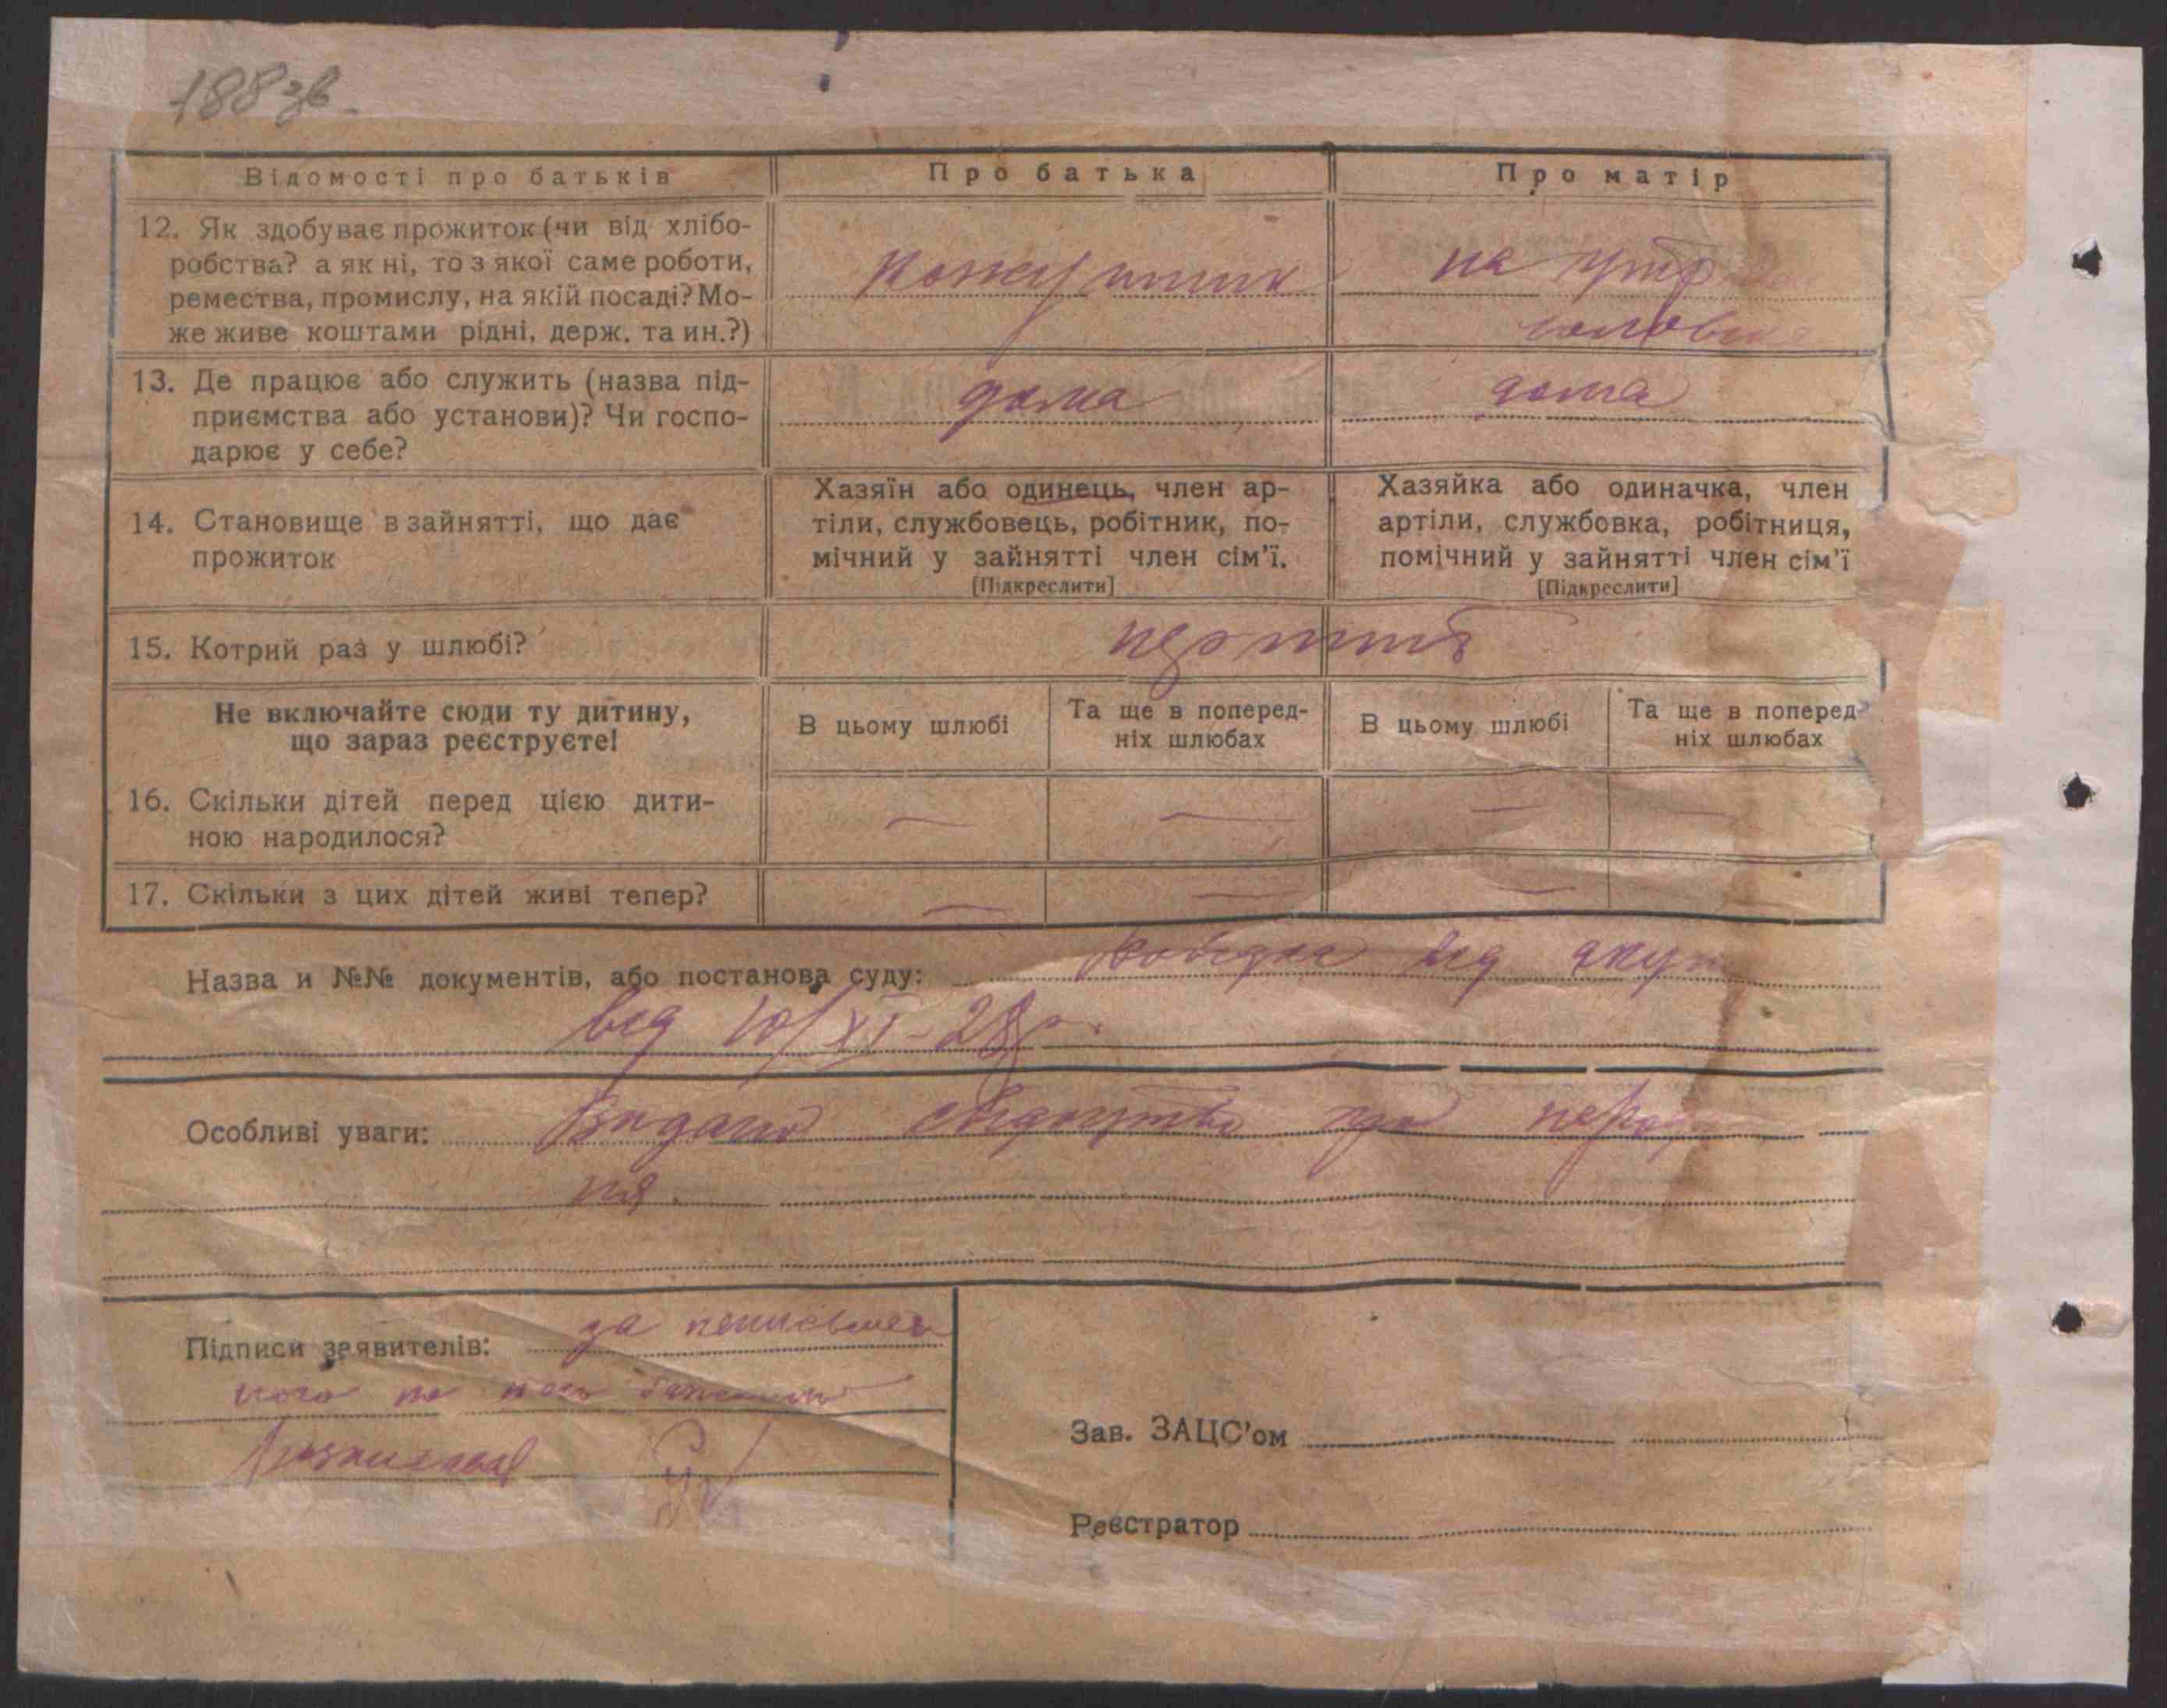 188 зв.
Відомості про батьків
Про батька
Про матір
12. Як здобуває прожиток (чи від хлібо-
робства? а як ні, то з якої саме роботи,
ремества, промислу, на якій посаді? Мо-
же живе коштами рідні, держ. та ин.?)
Кожушник
на утр
чоловіка
13. Де працює або служить (назва під-
приємства або установи)? Чи госпо-
дарює у себе?
дома
дома
14. Становище в зайнятті, що дає
прожиток
Хазяїн або одинець, член ар-
тіли, службовець, робітник, по-
мічний у зайнятті член сім'ї.
[Підкреслити]
Хазяйка або одиначка, член
артіли, службовка, робітниця,
помічний у зайнятті член сім'ї
[Підкреслити]
15. Котрий раз у шлюбі?
Не включайте сюди ту дитину,
що зараз реєструєте!
В цьому шлюбі
Та ще в поперед-
ніх шлюбах
В цьому шлюбі
Та ще в поперед-
ніх шлюбах
16. Скільки дітей перед цією дити-
ною народилося?
— — — —
17. Скільки з цих дітей живі тепер?
— — — —
Назва и №№ документів, або постанова суду: Довідка від акуш
від 10/XI-28р.
Особливі уваги: Видано свідоцтво про
ня.
Підписи заявителів: за неписьмен
ного
Зав. ЗАЦС'ом
Реєстратор